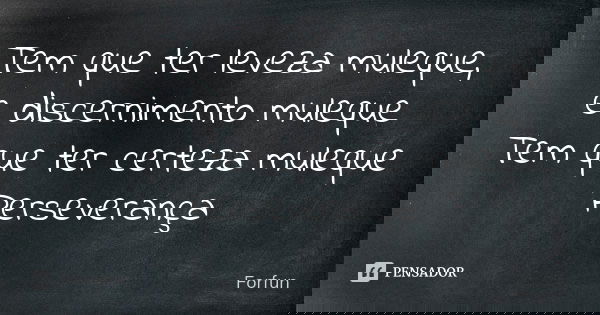 Tem que ter leveza muleque,
e discernimento muleque
Tem que ter certeza muleque
Perseverança
Forfun
PENSADOR